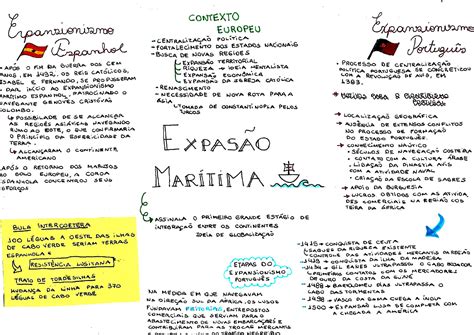 Expansionismo
Espanhol
• APÓS O FIM DA GUERRA DOS CEM
ANOS, EM 1492, OS REIS CATÓLICOS,
ISABEL E FERNANDO, SE PROPUSERAM
DAR INÍCIO AO EXPANSIONISMO
MARÍTIMO ESPANHOL, PATROCINANDO O
NAVEGANTE GENOVÊS CRISTÓVÃO
COLOMBO.
POSSIBILIDADE DE SE ALCANÇAR
AS REGIÕES ASIÁTICAS NAVEGANDO
RUMO AO OESTE, O QUE CONFIRMARIA
O PRINCÍPIO DA ESFERICIDADE DA
TERRA.
ALCANÇARAM O CONTINENTE
AMERICANO
APÓS O RETORNO DOS MARUJOS
AO SOLO EUROPEU, A COROA
ESPANHOLA CONCENTROU SEUS
ESFORÇOS
BULA INTERCOETERA
100 LÉGUAS A OESTE DAS ILHAS
DE CABO VERDE SERIAM TERRAS
ESPANHOLAS
RESISTÊNCIA LUSITANA
TRATADO DE TORDESILHAS
MUDANÇA DA LINHA PARA 370
LÉGUAS DE CABO VERDE
CONTEXTO
EUROPEU
• CENTRALIZAÇÃO POLÍTICA
• FORTALECIMENTO DOS ESTADOS NACIONAIS
• BUSCA DE NOVAS REGIÕES
EXPANSÃO TERRITORIAL
RIQUEZA → IDEIA METALISTA
EXPANSÃO ECONÔMICA
EXPANSÃO DA IGREJA CATÓLICA
• RENASCIMENTO
• NECESSIDADE DE NOVA ROTA PARA A
ÁSIA
TOMADA DE CONSTANTINOPLA PELOS
TURCOS
EXPASÃO
MARÍTIMA
ASSINALA O PRIMEIRO GRANDE ESTÁGIO DE
INTEGRAÇÃO ENTRE OS CONTINENTES
IDEIA DE GLOBALIZAÇÃO
ETAPAS DO
EXPANSIONISMO
PORTUGUÊS
NA MEDIDA EM QUE NAVEGAVAM
NA DIREÇÃO SUL DA ÁFRICA OS LUSOS
FUNDAVAM FEITORIAS, ENTREPOSTOS
COMERCIAIS QUE SERVIAM PARA O
ABASTECIMENTO DE NOVAS EMBARCAÇÕES E
CONTRIBUÍRAM PARA AS TROCAS MERCANTIS
Expansionismo
Português
• PROCESSO DE CENTRALIZAÇÃO
POLÍTICA PORTUGUESA SE CONCRETIZOU
COM A REVOLUÇÃO DE AVIS, EM
1385.
• LOCALIZAÇÃO GEOGRÁFICA
• AUSÊNCIA DE EXTREMOS CONFLITOS
NO PROCESSO DE FORMAÇÃO
DO ESTADO PORTUGUÊS.
• CONHECIMENTO NÁUTICO
• SÉCULOS DE NAVEGAÇÃO COSTEIRA
• CONTATO COM A CULTURA ÁRABE
• LIGAÇÃO DA DINASTIA AVIS
COM A ATIVIDADE NAVAL
• CRIAÇÃO DA ESCOLA DE SAGRES
• APOIO DA BURGUESIA
→ LUCROS OBTIDOS COM AS ATIVIDA
DES COMERCIAIS NA REGIÃO COS
TEIRA DA ÁFRICA
1415 → CONQUISTA DE CEUTA
1488 → BARTOLOMEU DIAS ULTRAPASSA O
CABO DAS TORMENTAS
1498 → VASCO DA GAMA CHEGA À ÍNDIA
1500 → EXPANSÃO LUSA SE COMPLETA COM
A CHEGADA A AMÉRICA